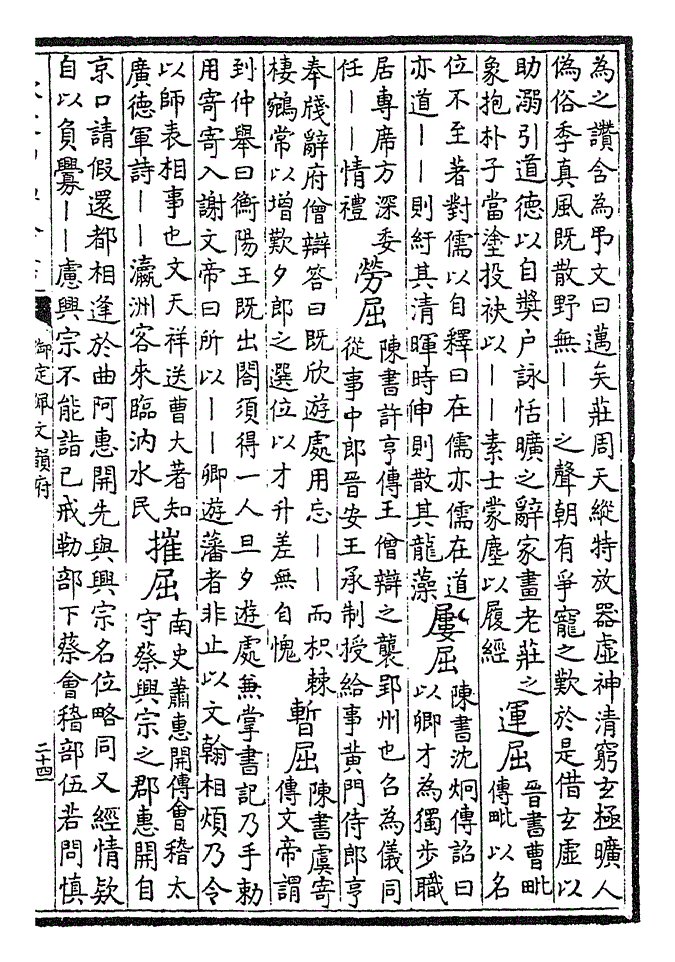 為之讚含為弔文曰邁矣莊周天縱特放器虛神清窮玄極曠人
偽俗季真風既散野無——之聲朝有爭寵之歎於是借玄虛以
助溺引道德以自獎户詠恬曠之辭家畫老莊之
象抱朴子當塗投袂以——素士蒙塵以履經
運屈
晉書曹毗
傳毗以名
位不至著對儒以自釋曰在儒亦儒在道
亦道——則紆其清暉時伸則散其龍藻
屢屈
陳書沈炯傳詔曰
以卿才為獨步職
居專席方深委
任——情禮
勞屈
陳書許亨傳王僧辯之襲郢州也召為儀同
從事中郎晉安王承制授給事黃門侍郎亨
奉牋辭府僧辯答曰既欣遊處用忘——而枳棘
棲鵷常以增歎夕郎之選位以才升差無自愧
暫屈
陳書虞寄
傳文帝謂
到仲舉曰衡陽王既出閤須得一人旦夕遊處兼掌書記乃手勅
用寄寄入謝文帝曰所以——卿遊藩者非止以文翰相煩乃令
以師表相事也文天祥送曹大著知
廣德軍詩——瀛洲客來臨汭水民
摧屈
南史蕭惠開傳會稽太
守蔡興宗之郡惠開自
京口請假還都相逢於曲阿惠開先與興宗名位略同又經情款
自以負釁——慮興宗不能詣己戒勒部下蔡會稽部伍若問慎
御定佩文韻府
二十四